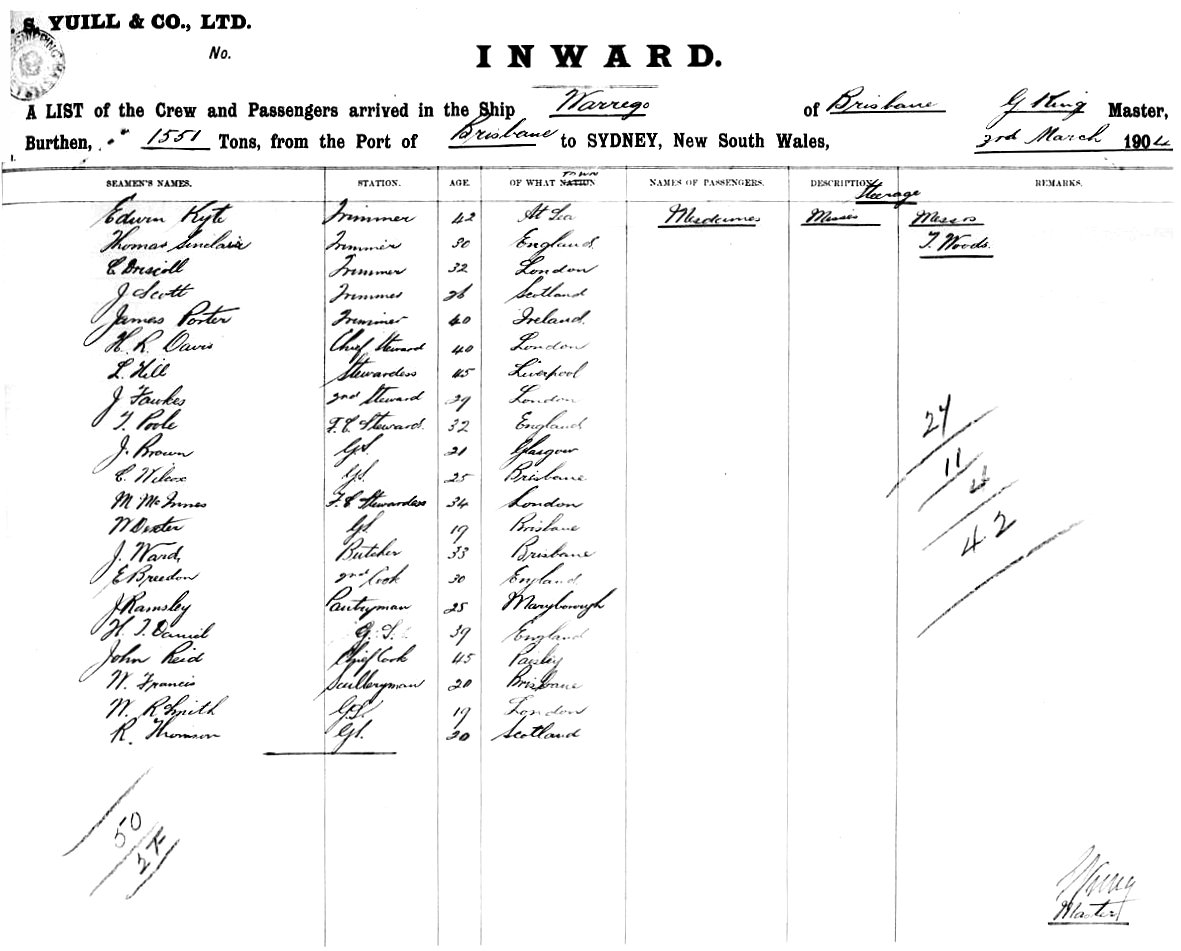 S. YUILL & CO., LTD.
No.
INWARD.
A LIST of the Crew and Passengers arrived in the Ship Warrego of Brisbane G King Master,
Burthen, 1551 Tons, from the Port of Brisbane to SYDNEY, New South Wales, 3rd March 1904
SEAMEN'S NAMES. STATION. AGE. OF WHAT NATION TOWN NAMES OF PASSENGERS. DESCRIPTION REMARKS.
Steerage
Edwin Kyte Trimmer 42 At Sea Mesdames Misses Messrs
Thomas Sinclair Trimmer 30 England T. Woods.
C Driscoll Trimmer 32 London
J Scott Trimmer 26 Scotland
James Porter Trimmer 40 Ireland.
H. R. Davis Chief Steward 40 London
L. Hill Stewardess 45 Liverpool
J Fawkes 2nd Steward 29 London
T. Poole F. C Steward. 32 England
J. Brown GS. 21 Glasgow
C. Wilcox GS. 25 Brisbane
M McInnes F. C Stewardess 34 London
W Dexter GS. 19 Brisbane
J. Ward, Butcher 33 Brisbane
E Breedon 2nd Cook 30 England
J Ramsley Pantryman 25 Maryborough
H. T. Daniel G. S. 39 England
John Reid Chief Cook 45 Paisley
W. Francis Sculleryman 20 Brisbane
W. R Smith G.S. 19 London
R. Thomson GS. 20 Scotland
24
11
42
50
King
Master